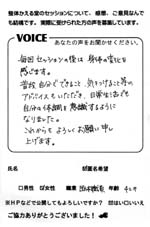 整体かえる堂のセッションについて、感想、ご意見なんでも
結構です。実際に受けられた方の声を募集しています。
VOICE
あなたの声をお聞かせください。
毎回セッションの後は身体の変化を
感じます。
普段自分でできること、気をつけること等の
アドバイスもいただき、日常生活でも
自分の体調を意識するように
なりました。
これからもよろしくお願い申し
上げます。
氏名
部署名希望
□男性 ☑女性 職業 年齢
※HPなどで公開してもよろしいですか? ☑はい □いいえ
ご協力ありがとうございました!